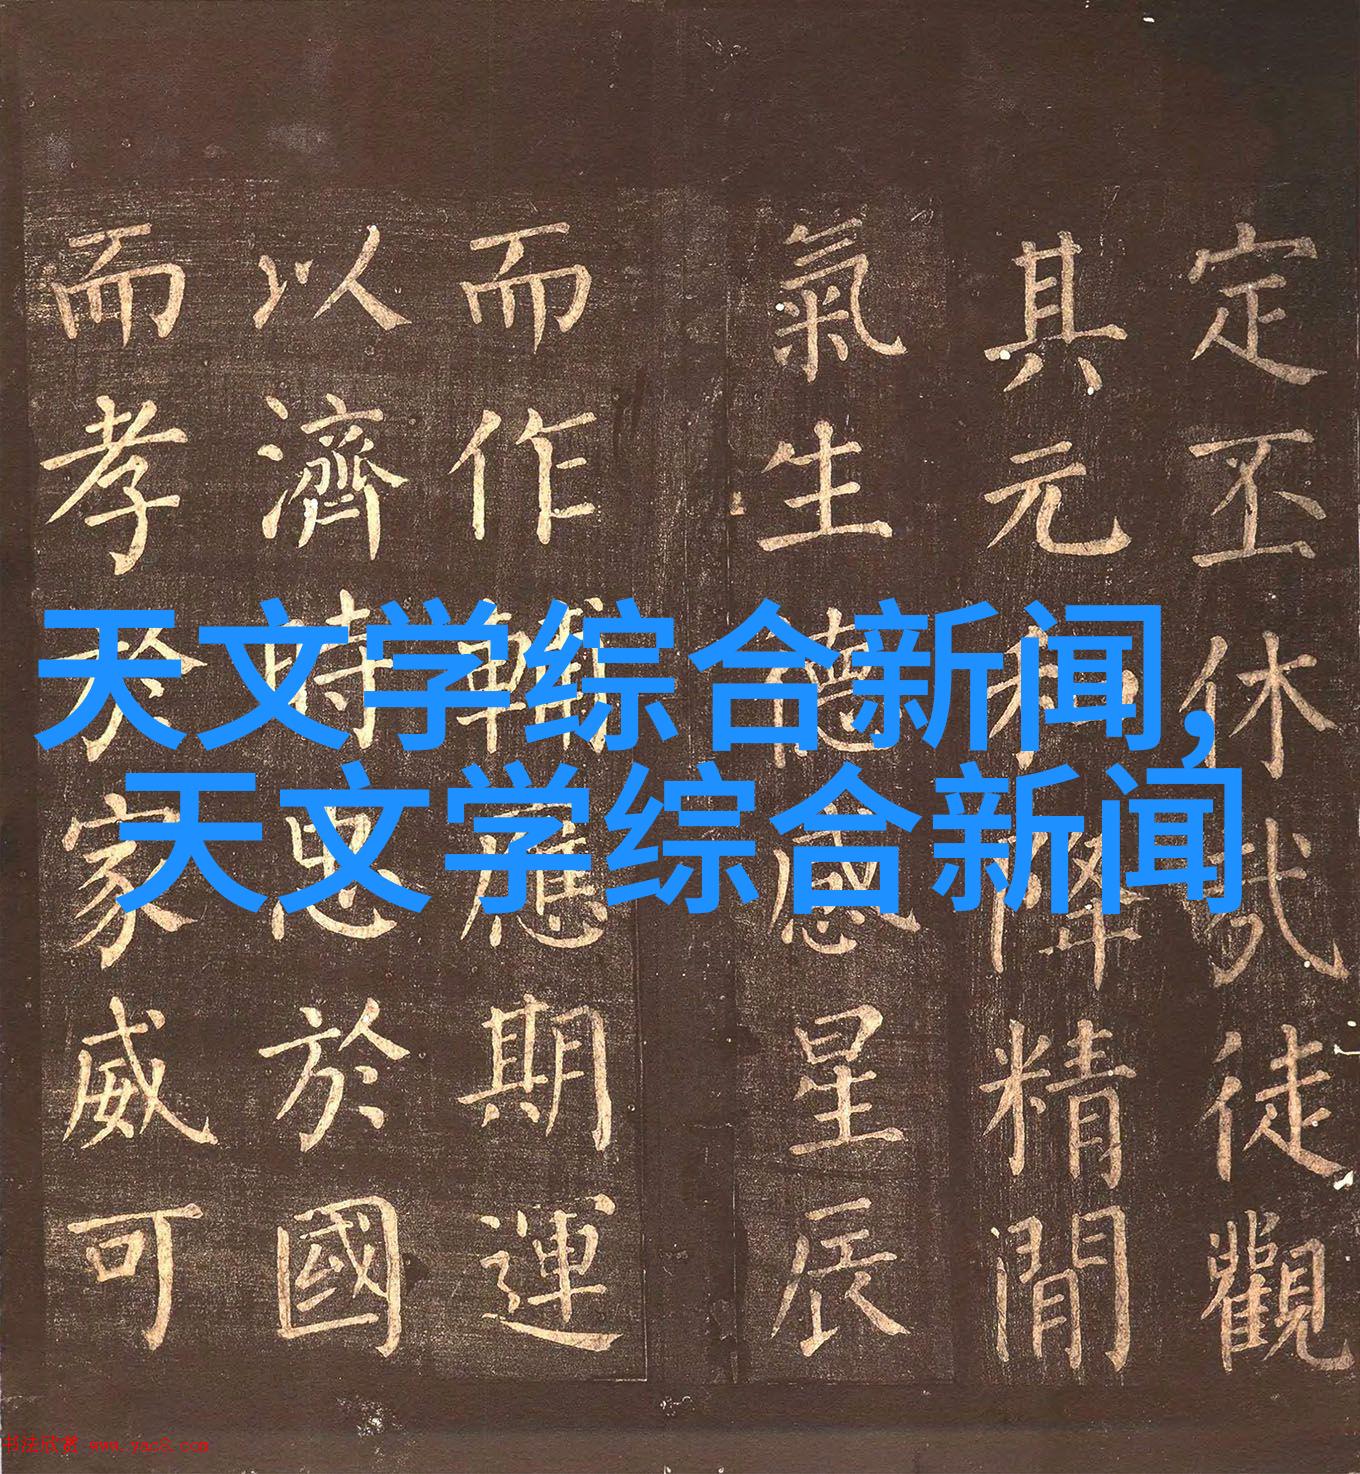 定丕休哉徒觀
其元和降精閒
氣生德感星辰
而作輔應期運
以濟時忠於國
而孝於家威可
天文学综合新闻,
天文学综合新闻
书法欣赏 www.yac8.com